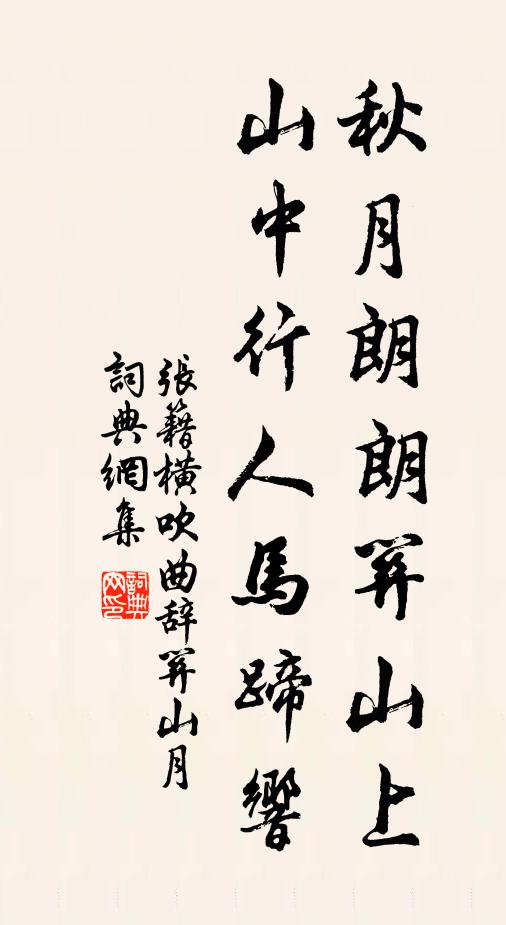 秋月朗朗關山上
山中行人馬蹄響
張籍橫吹曲辭關山月
詞典網集
詞典网印